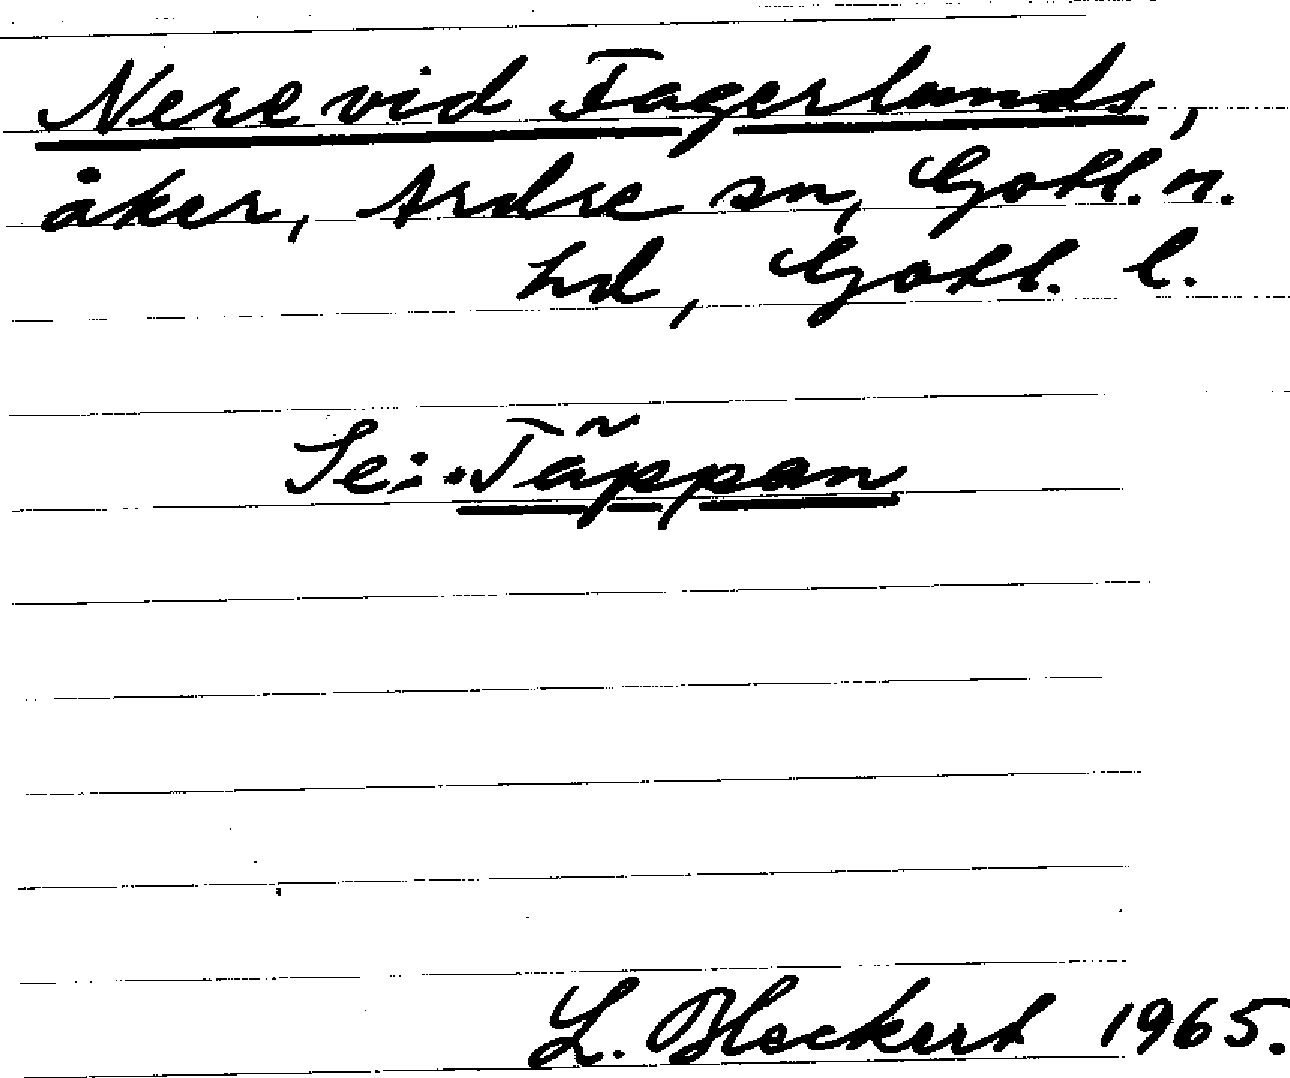 Nere vid Fagerlands,
åker, Ardre sn, Gotl. n.
hd, Gotl. l.
Se: Täppan
L. Bleckert 1965.